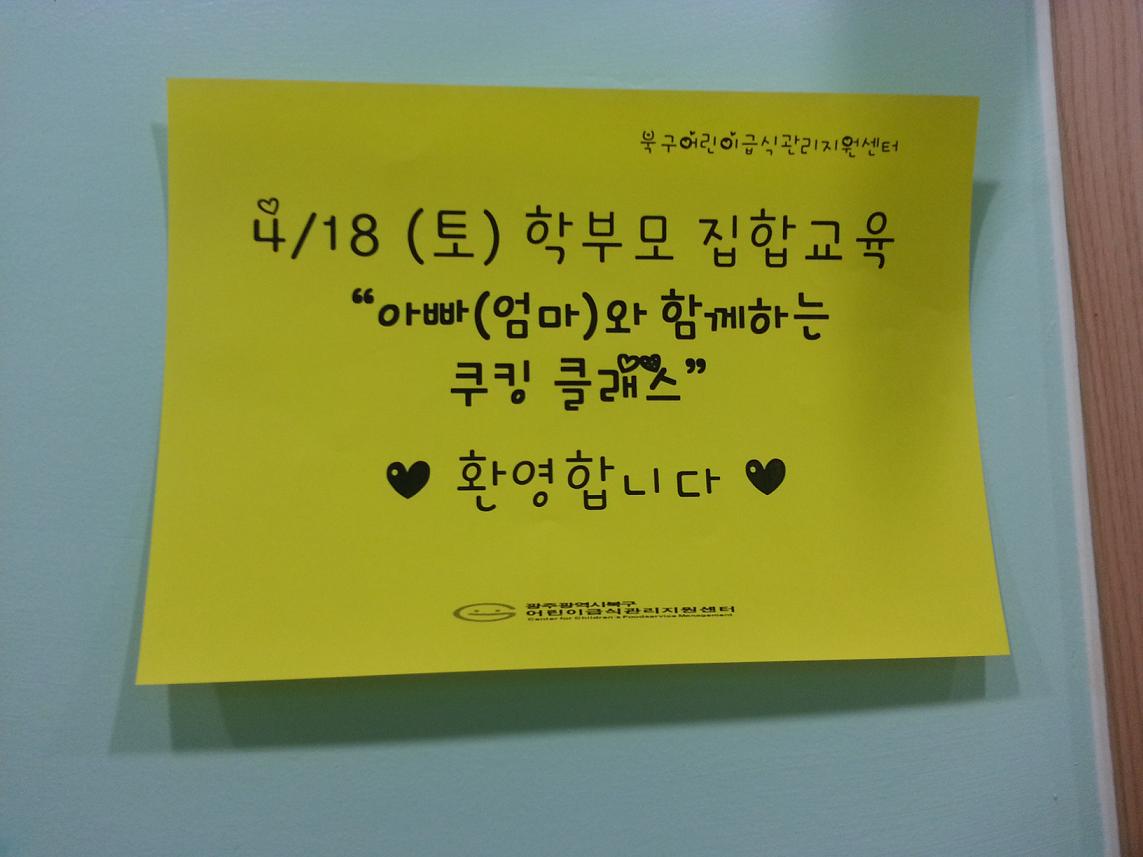 북구어린이급식관리지원센터
4/18 (토) 학부모 집합교육
“아빠(엄마)와 함께하는
쿠킹 클래스”
♥ 환영합니다 ♥
광주광역시북구
어린이급식관리지원센터
Center for Children's Foodservice Management